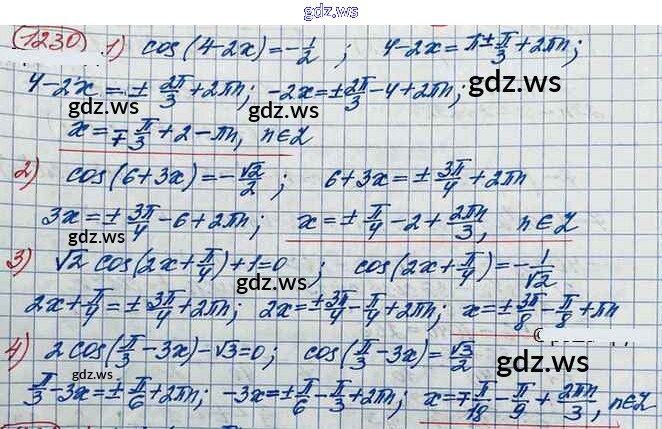 gdz.ws
1230) 1) cos(4-2x)=-1/2 ; 4-2x=π±π/3+2πn;
gdz.ws gdz.ws
4-2x=±2π/3+2πn; -2x=±2π/3-4+2πn;
gdz.ws gdz.ws
x=∓π/3+2-πn, n∈Z
2) cos(6+3x)=-√2/2 ; 6+3x=±3π/4+2πn
gdz.ws gdz.ws
3x=±3π/4-6+2πn; x=±π/4-2+2πn/3, n∈Z
gdz.ws gdz.ws
3) √2 cos(2x+π/4)+1=0 ; cos(2x+π/4)=-1/√2
gdz.ws gdz.ws
2x+π/4=±3π/4+2πn; 2x=±3π/4-π/4+2πn; x=±3π/8-π/8+πn
4) 2cos(π/3-3x)-√3=0; cos(π/3-3x)=√3/2
gdz.ws gdz.ws
π/3-3x=±π/6+2πn; -3x=±π/6-π/3+2πn; x=∓π/18-π/9+2πn/3, n∈Z
gdz.ws gdz.ws